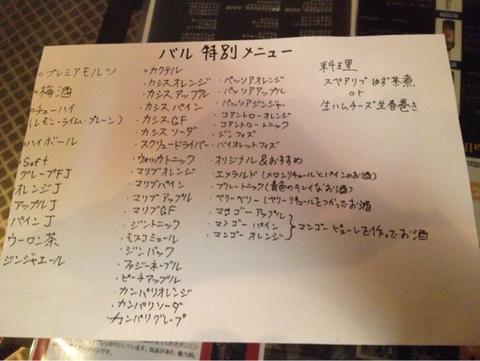 バル 特別メニュー
○プレミアモルツ
○梅酒
○チューハイ
(レモン・ライム・プレーン)
○ハイボール
○Soft
グレープFJ
オレンジJ
アップルJ
パインJ
ウーロン茶
ジンジャエール
○カクテル
・カシスオレンジ
・カシスアップル
・カシスパイン
・カシスGF
・カシスソーダ
・スクリュードライバー
・ウォッカトニック
・マリブオレンジ
・マリブパイン
・マリブアップル
・マリブGF
・ジントニック
・モスコミュール
・ジンバック
・ファジーネーブル
・ピーチアップル
・カンパリオレンジ
・カンパリソーダ
・カンパリグレープ
・パッソアオレンジ
・パッソアアップル
・パッソアジンジャー
・コアントローオレンジ
・コアントロートニック
・ジンフィズ
・バイオレットフィズ
・オリジナル&おすすめ
・エメラルド(メロンリキュールとパインのお酒)
・ブルートニック(青色のキレイなお酒)
・ベリーベリー(ベリーリキュールをつかったお酒
・マンゴーアップル
・マンゴーパイン
・マンゴーオレンジ
マンゴーピューレを作ったお酒
料理
スペアリブゆず茶煮
or
生ハムチーズ生春巻き